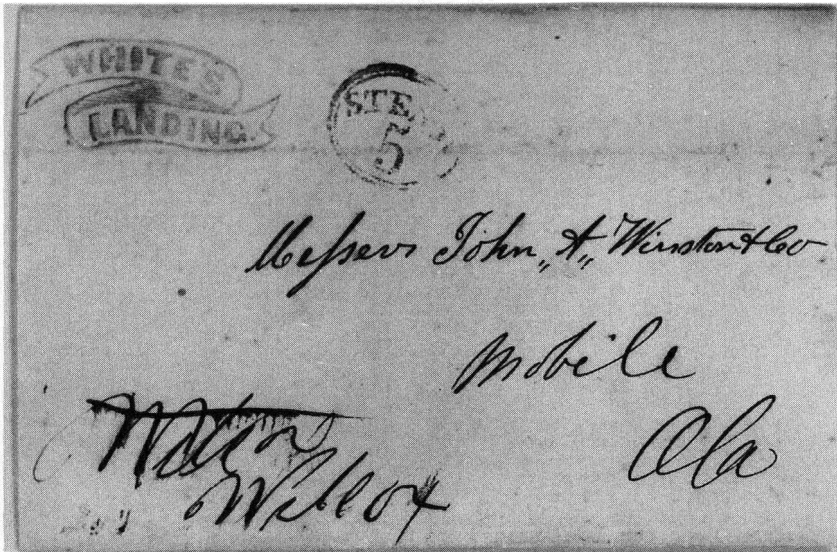 WHITE'S
LANDING.
STEAM
5
Messers John „A„ Winston & Co
Mobile
Ala
Wilcox